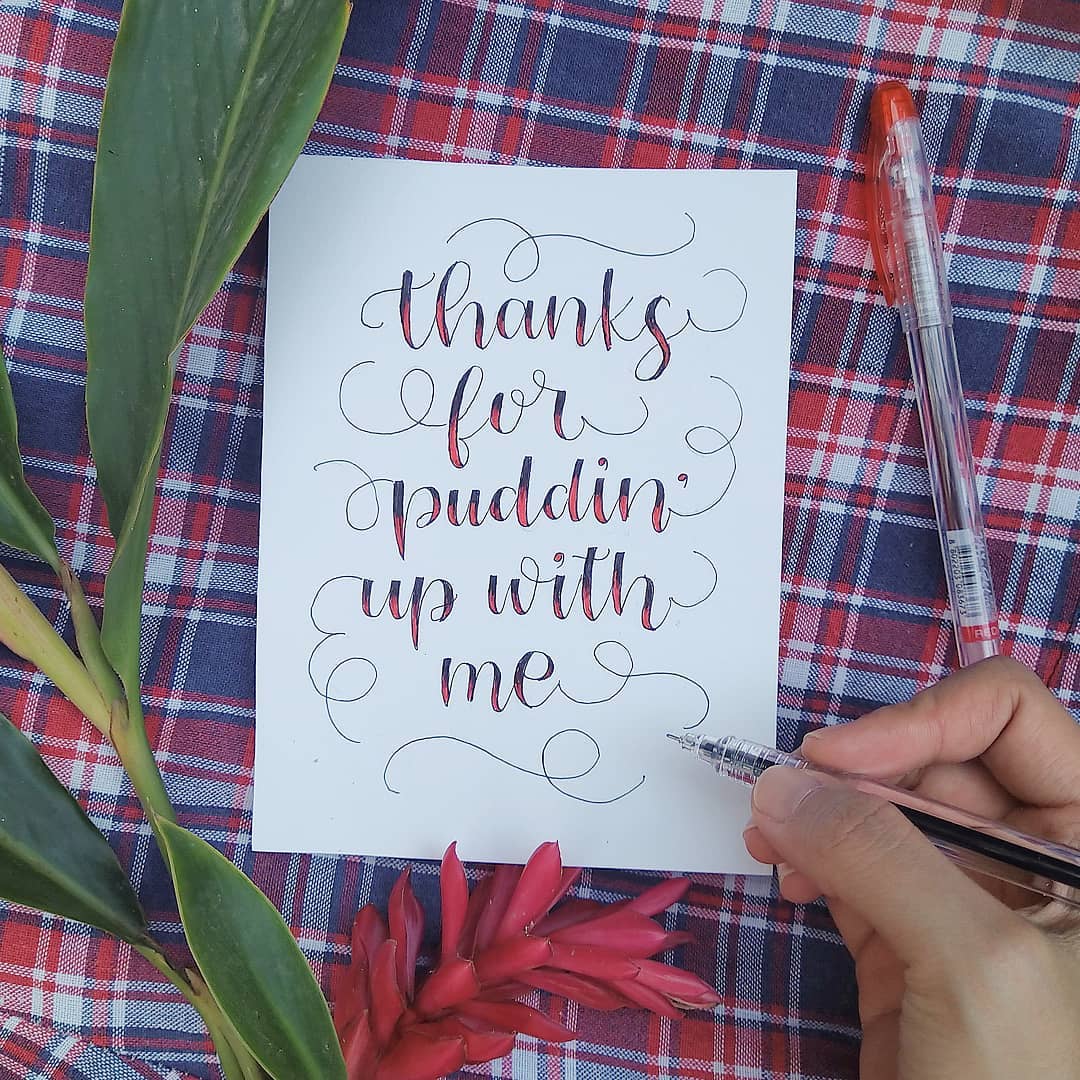 thanks
for
puddin'
up with
me
RED